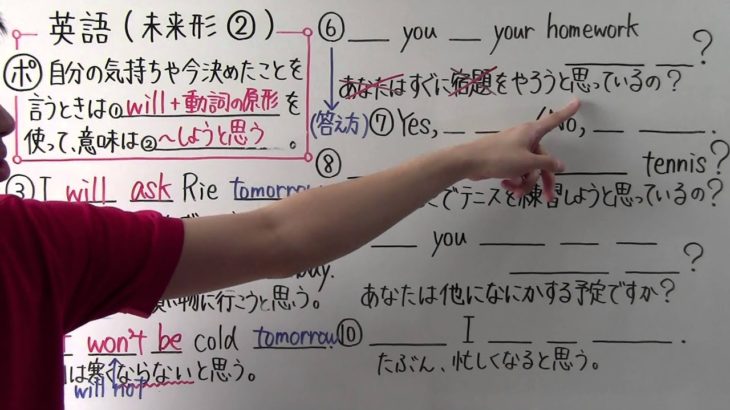 英語(未来形②)
ポ 自分の気持ちや今決めたことを
言うときは①will+動詞の原形を
使って、意味は②~しようと思う。
③I will ask Rie tomorrow
buy.
い物に行こうと思う。
won't be cold tomorrow
は寒くならないと思う。
will not
⑥ __ you __ your homework ____ __?
あなたはすぐに宿題をやろうと思っているの?
(答え方)⑦Yes, __ __ /No, __ ___.
⑧ tennis?
でテニスを練習しようと思っているの?
__ you __ __ __ ____ __?
あなたは他になにかする予定ですか?
⑩ ____ I __ __ ___.
たぶん、忙しくなると思う。